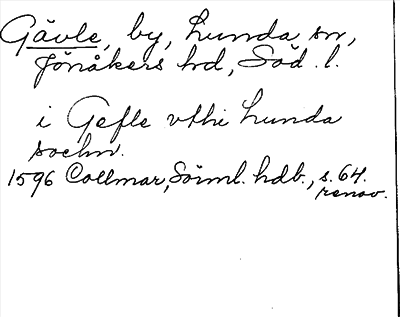 Gävle, by, Lunda sn,
Jönåkers hd, Söd. l.
i Gefle vthi Lunda
sochn.
1596 Collmar, Sörml. hdb., s. 64.
renov.